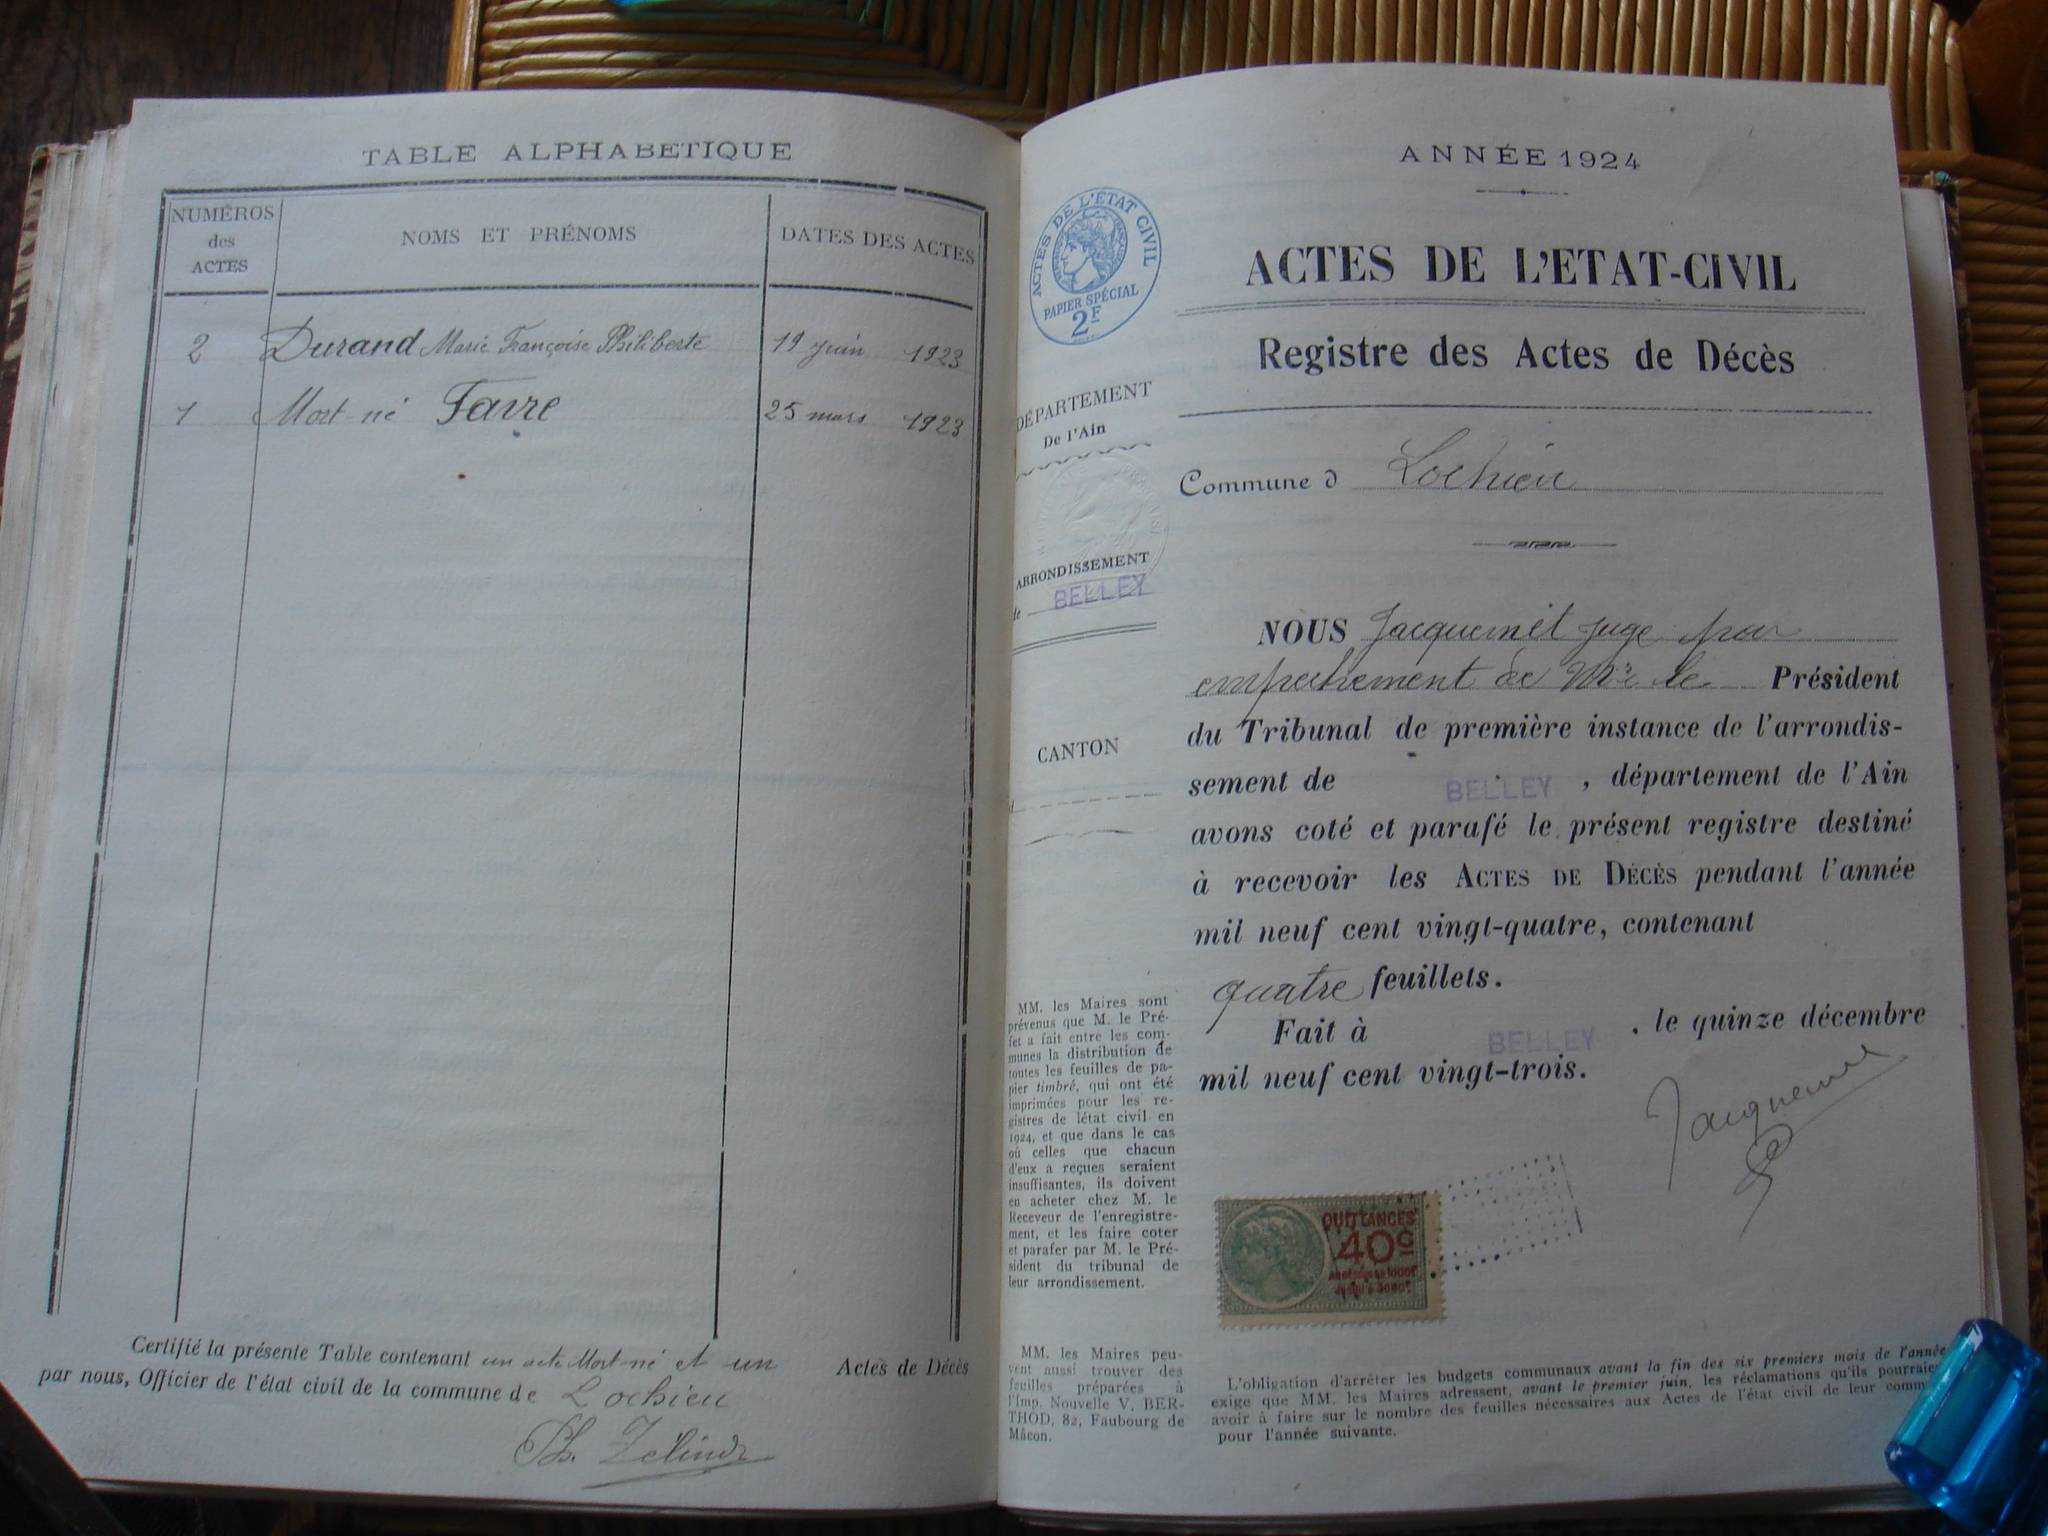 TABLE ALPHABETIQUE
NUMÉROS
des
ACTES
NOMS ET PRÉNOMS
DATES DES ACTES
2 Durand Marie Françoise Philiberte 19 juin 1923
1 Mort-né Favre 25 mars 1923
Certifié la présente Table contenant un acte Mort-né et un Actes de Décès
par nous, Officier de l'état civil de la commune de Lochieu
Ph.
ANNÉE 1924
ACTES DE L'ETAT CIVIL
PAPIER SPÉCIAL
2F
ACTES DE L'ETAT-CIVIL
Registre des Actes de Décès
DÉPARTEMENT
De l'Ain
Commune d Lochieu
ARRONDISSEMENT
de BELLEY
CANTON
NOUS Jacquemet juge par
empechement de Mr le Président
du Tribunal de première instance de l'arrondis-
sement de BELLEY, département de l'Ain
avons coté et parafé le présent registre destiné
à recevoir les ACTES DE DÉCÈS pendant l'année
mil neuf cent vingt-quatre, contenant
quatre feuillets.
Fait à BELLEY, le quinze décembre
mil neuf cent vingt-trois.
MM. les Maires sont
prévenus que M. le Pré-
fet a fait entre les com-
munes la distribution de
toutes les feuilles de pa-
pier timbré, qui ont été
imprimées pour les re-
gistres de létat civil en
1924, et que dans le cas
où celles que chacun
d'eux a reçues seraient
insuffisantes, ils doivent
en acheter chez M. le
Receveur de l'enregistre-
ment, et les faire coter
et parafer par M. le Pré-
sident du tribunal de
leur arrondissement.
QUITTANCES
40c
MM. les Maires peu-
vent aussi trouver des
feuilles préparées à
l'Imp. Nouvelle V. BER-
THOD, 82, Faubourg de
Mâcon.
L'obligation d'arrêter les budgets communaux avant la fin des six premiers mois de l'année
exige que MM. les Maires adressent, avant le premier juin, les réclamations qu'ils pourraie
avoir à faire sur le nombre des feuilles nécessaires aux Actes de l'état civil de leur comm
pour l'année suivante.